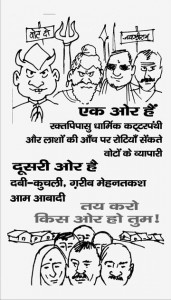 वोट के
एक ओर हैं
रक्तपिपासु धार्मिक कट्टरपंथी
और लाशों की आँच पर रोटियाँ सेंकते
वोटों के व्यापारी
दूसरी ओर है
दबी-कुचली, ग़रीब मेहनतकश
आम आबादी
तय करो
किस ओर हो तुम!